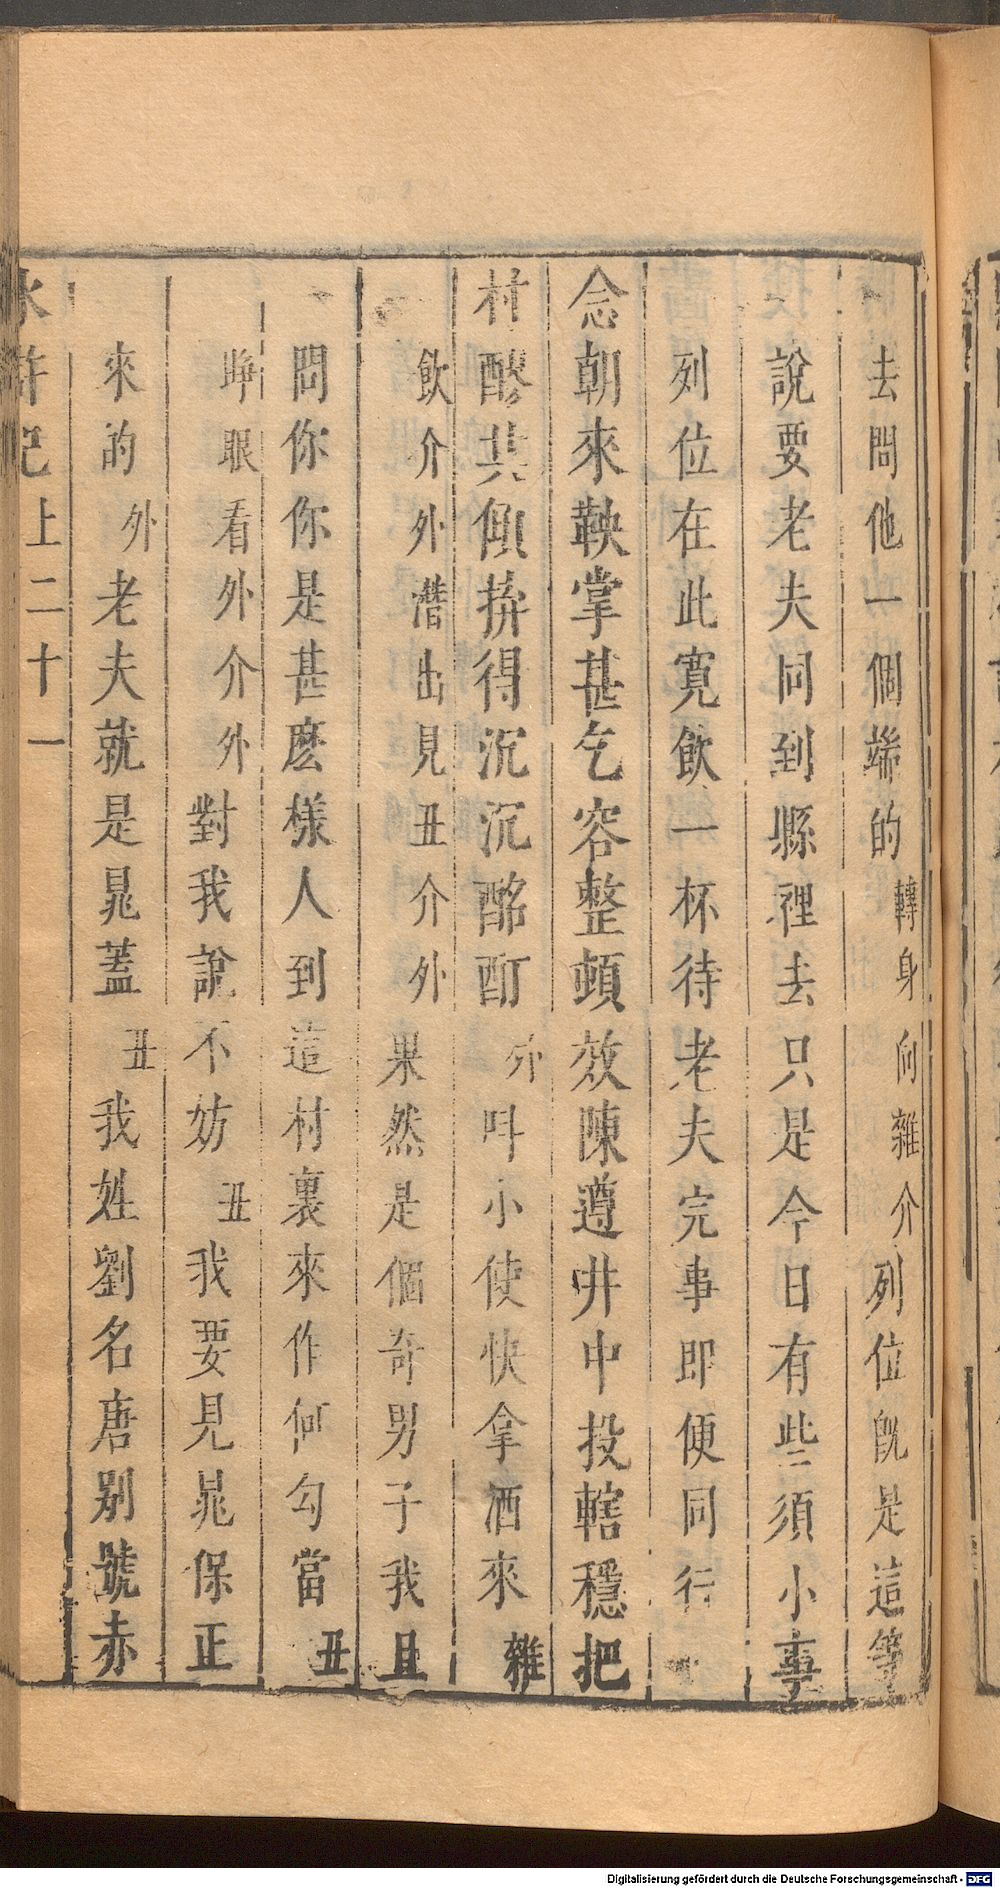 去問他一個端的轉身向雜介列位旣是這等
說要老夫同到縣裡去只是今日有些須小事
列位在此寬飲一杯待老夫完事即便同行
念朝來鞅掌甚乞容整頓效陳遵井中投轄穩把
村醪共傾拚得沉沉酩酊外呌小使快拿酒來雜
飲介外潛出見丑介外果然是個奇男子我且
問你你是甚麽樣人到這村裏來作何勾當丑
睜眼看外介外對我說不妨丑我要見晁保正
來的外老夫就是晁蓋丑我姓劉名唐别號赤
水滸記上二十一
Digitalisierung gefördert durch die Deutsche Forschungsgemeinschaft - DFG